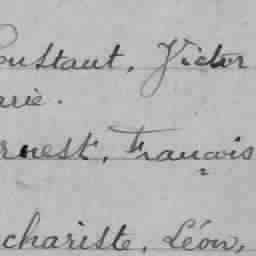 Constant, Victor
arie.
rnest, François
chariste, Léon,